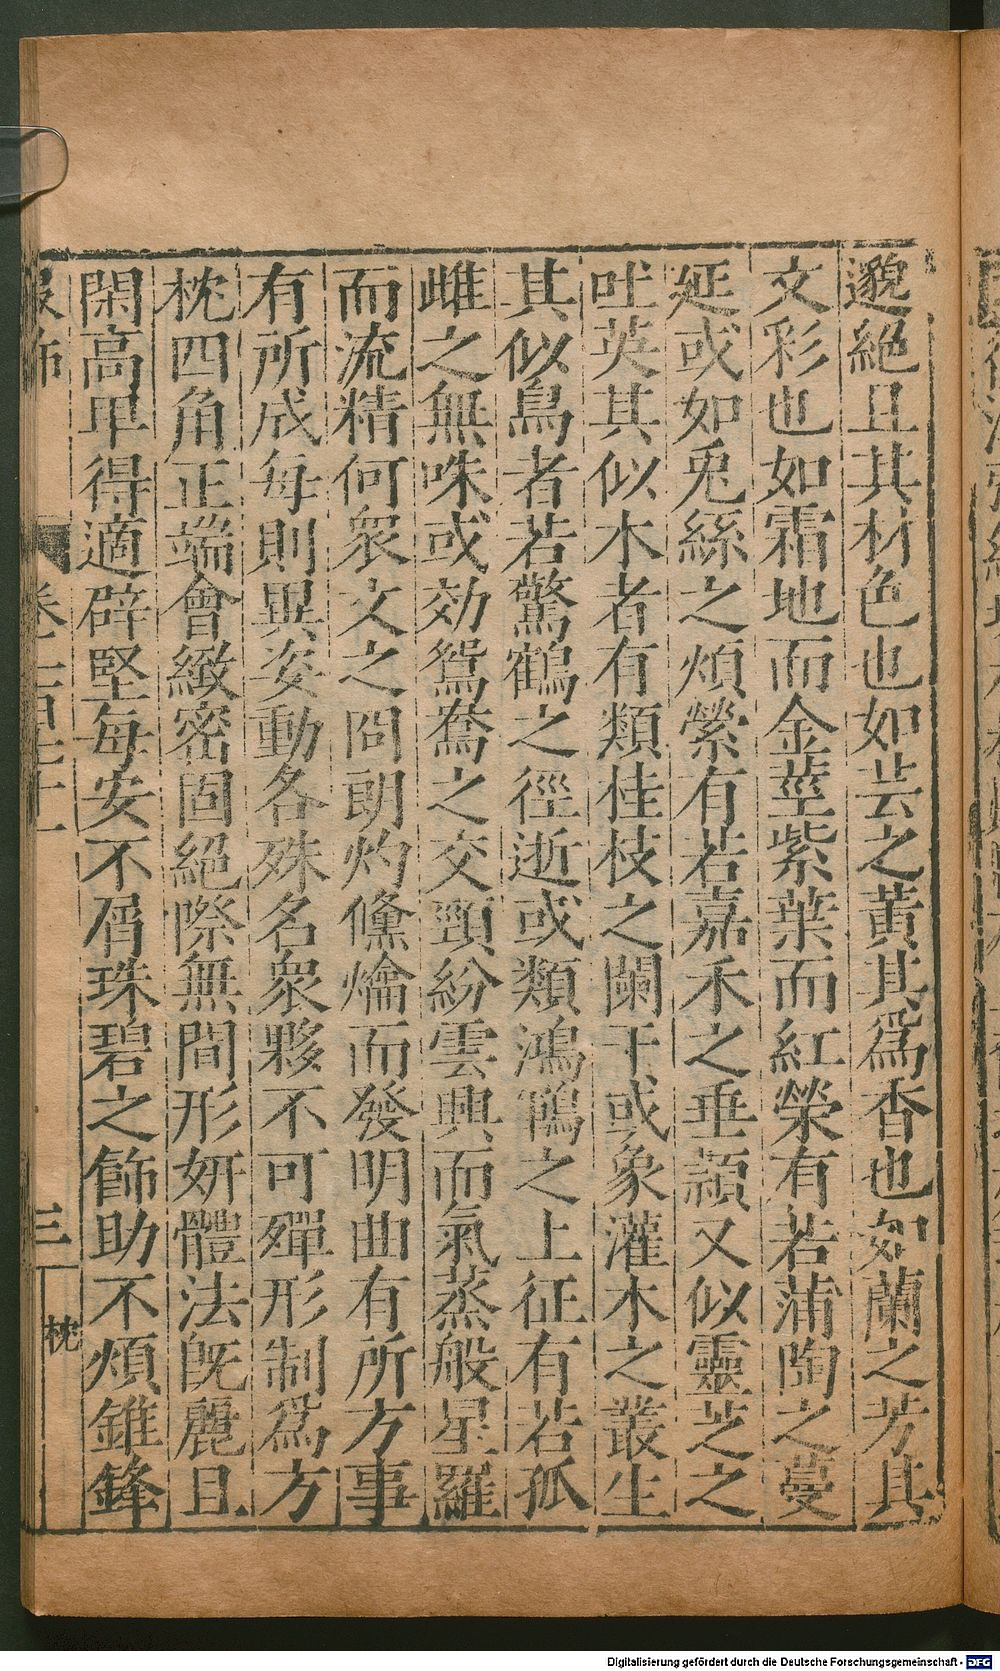 邈絕且其材色也如芸之黃其爲香也如蘭之芳其
文彩也如霜地而金莖紫葉而紅榮有若蒲陶之蔓
延或如兎絲之煩縈有若嘉禾之垂頴又似靈芝之
吐英其似木者有類桂枝之闌干或象灌木之叢生
其似鳥者若驚鶴之徑逝或類鴻鶤之上征有若孤
雌之無咮或効鴛鴦之交頸紛雲興而氣蒸般星羅
而流精何衆文之冏朗灼儵爚而發明曲有所方事
有所成每則異姿動各殊名衆夥不可殫形制爲方
枕四角正端會緻密固絕際無間形妍體法旣麗且
閑高卑得適辟堅每安不屑珠碧之飾助不煩錐鋒
服飾 三 枕
Digitalisierung gefördert durch die Deutsche Forschungsgemeinschaft - DFG